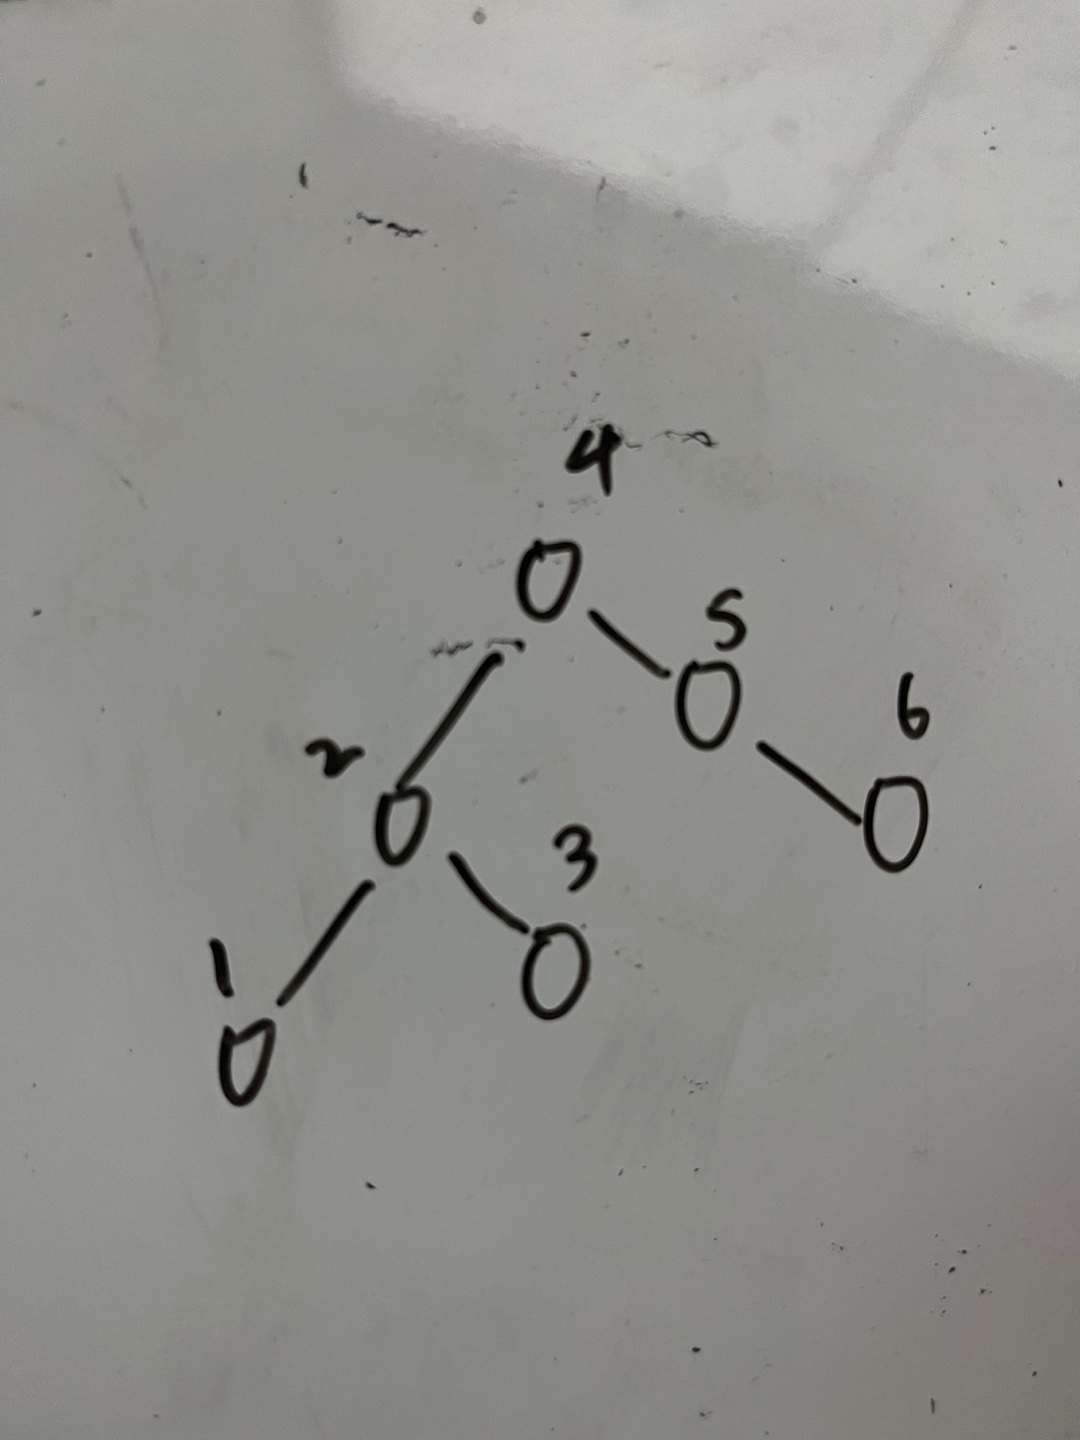 4
5
6
2
3
1